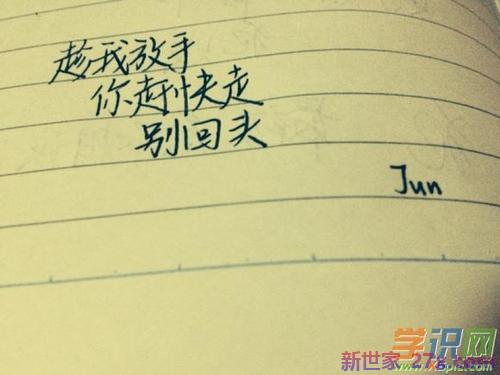 趁我放手
你赶快走
别回头
Jun
学识网
新世家